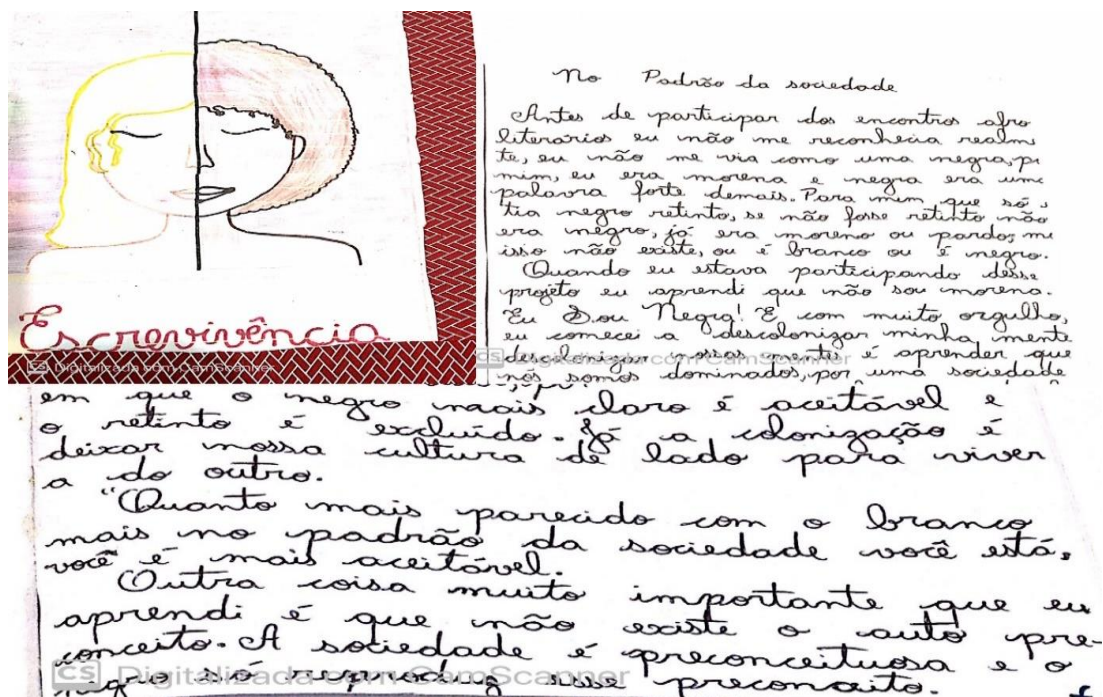 Escrevivência
CS Digitalizada com CamScanner
No Padrão da sociedade
Antes de participar dos encontros afro
literarios eu não me reconhecia realm
te, eu não me via como uma negra, p
mim, eu era morena e negra era uma
palavra forte demais. Para mim que só
tia negro retinto, se não fosse retinto não
era negro, já era moreno ou pardo, m
isso não existe, ou é branco ou é negro.
Quando eu estava participando desse
projeto eu aprendi que não sou morena.
Eu Sou Negra! E com muito orgulho,
eu comecei a descolonizar minha mente
descolonizar nossas mentes é aprender que
nós somos dominados, por uma sociedade
em que o negro mais claro é aceitável e
o retinto é excluído. Já a colonização é
deixar nossa cultura de lado para viver
a do outro.
"Quanto mais parecido com o branco
mais no padrão da sociedade você está,
você é mais aceitável.
Outra coisa muito importante que eu
aprendi é que não existe o auto pre-
conceito. A sociedade é preconceituosa e o
negro só reproduz esse preconceito.
CS Digitalizada com CamScanner